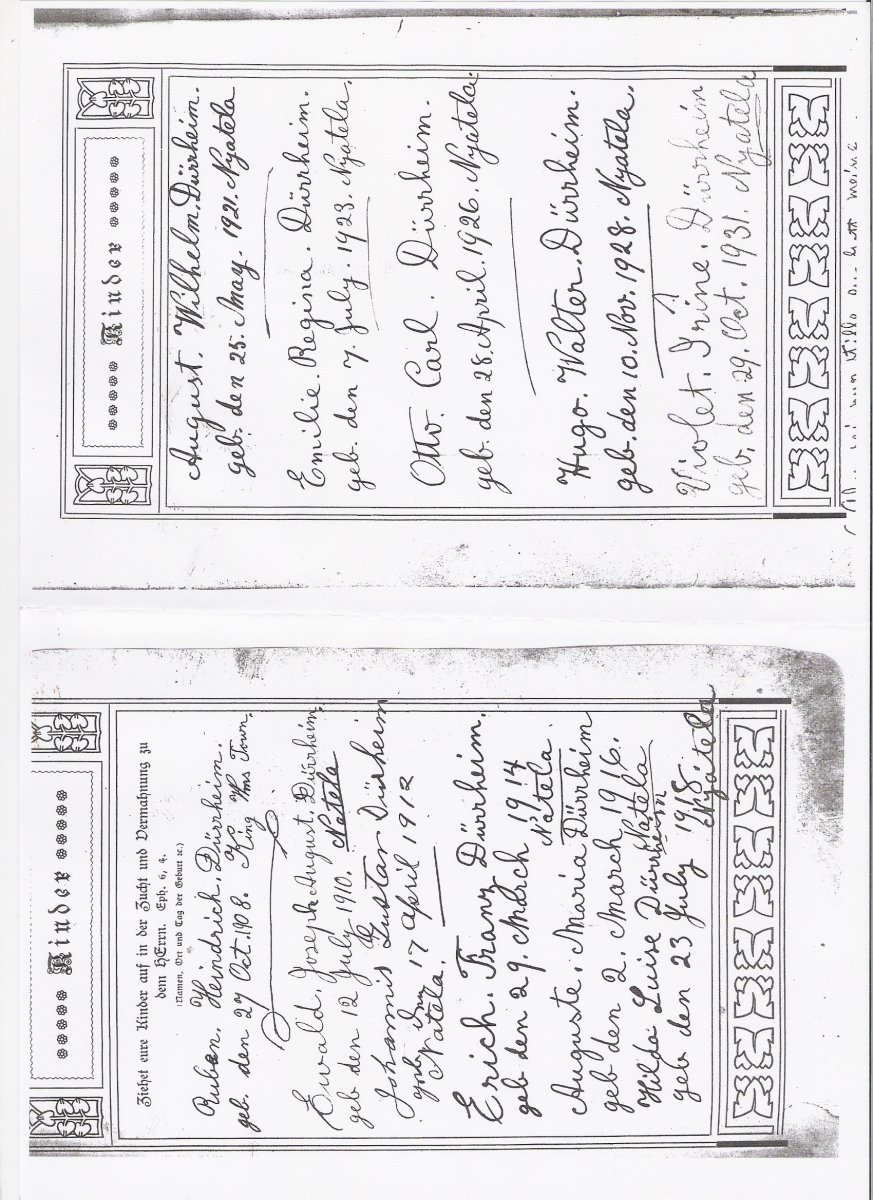 Kinder
Ziehet eure Kinder auf in der Zucht und Vermahnung zu
dem HErrn. Eph. 6, 4.
(Namen, Ort und Tag der Geburt ec.)
Ruben. Heindrich. Dürrheim.
geb. den 27 Oct. 1908. King Wms Town.
Ewald. Joseph August. Dürrheim.
geb den 12 July 1910. Natela
Johannis Gustav Dürrheim
geb den 17 April 1912
Natela.
Erich. Franz Dürrheim.
geb den 29. March 1914
Natela.
Auguste. Maria Dürrheim
geb den 2. March 1916.
Natela
Hilda Luise Dürrheim
geb den 23 July 1918
Nyatela
Kinder
August. Wilhelm. Dürrheim.
geb. den 25. May. 1921. Nyatela
Emilie. Regina. Dürrheim.
geb. den 7. July. 1923. Nyatela.
Otto. Carl. Dürrheim.
geb. den 28. April. 1926. Nyatela.
Hugo. Walter. Dürrheim.
geb. den 10. Nov. 1928. Nyatela.
Violet. Irine. Dürrheim
geb. den 29. Oct. 1931. Nyatela